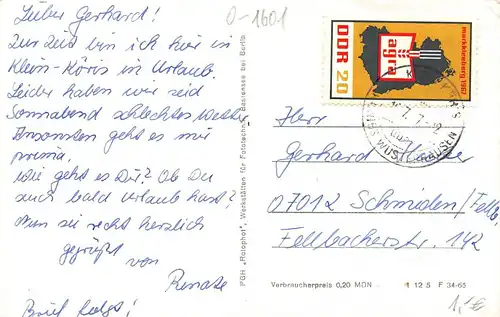 Lieber Gerhard!
Zur Zeit bin ich hier in
Klein-Köris in Urlaub.
Leider haben wir seid
Sonnabend schlechtes Wetter
Ansonsten geht es mir
prima.
Wie geht es Dir? Ob Du
auch bald Urlaub hast?
Nun sei recht herzlich
gegrüßt
von
Renate
Brief folgt!
0-1601
PGH "Rotophot", Werkstätten für Fotochemie, Bestensee bei Berlin
DDR 20
agra
markkleeberg 1967
KÖNIGS WUSTERHAUSEN
Herr
Gerhard
07012 Schmiden/Fellb.
Fellbacherstr. 142
Verbraucherpreis 0,20 MDN
1 12 5 F 34-65
1,-€